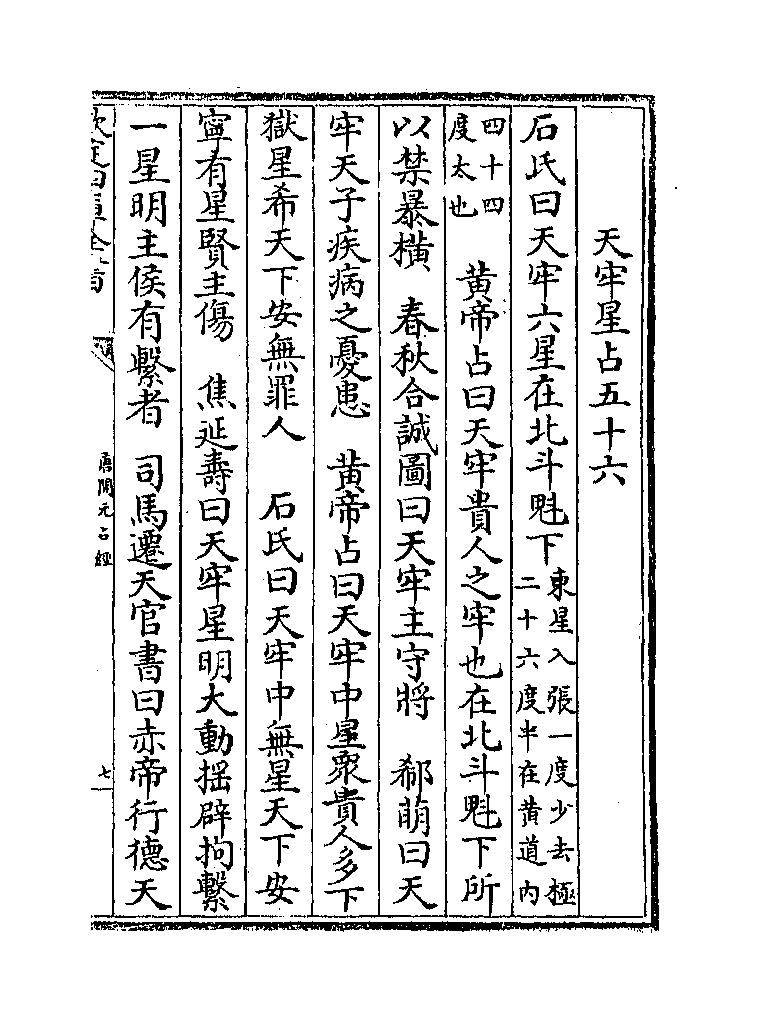 天牢星占五十六
石氏曰天牢六星在北斗魁下東星入張一度少去極二十六度半在黄道内
四十四度太也　黄帝占曰天牢貴人之牢也在北斗魁下所
以禁暴橫　春秋合誠圖曰天牢主守將　郗萌曰天
牢天子疾病之憂患　黄帝占曰天牢中星衆貴人多下
獄星希天下安無罪人　石氏曰天牢中無星天下安
寧有星賢主傷　焦延壽曰天牢星明大動揺辟拘繫
一星明主侯有繫者　司馬遷天官書曰赤帝行德天
欽定四庫全書
唐開元占經
七